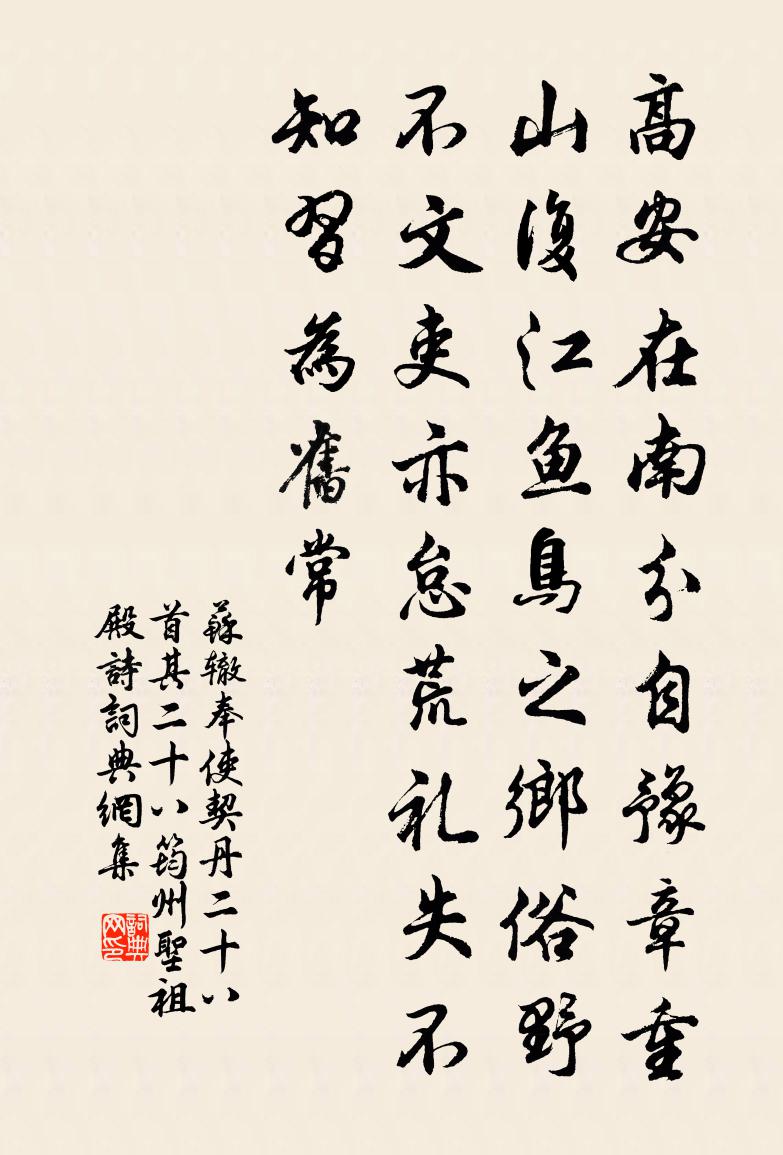 高安在南分自豫章重
山復江魚鳥之鄉俗野
不文吏亦怠荒礼失不
知習為舊常
蘇轍奉使契丹二十八
首其二十八筠州聖祖
殿詩詞典網集
詞典网印